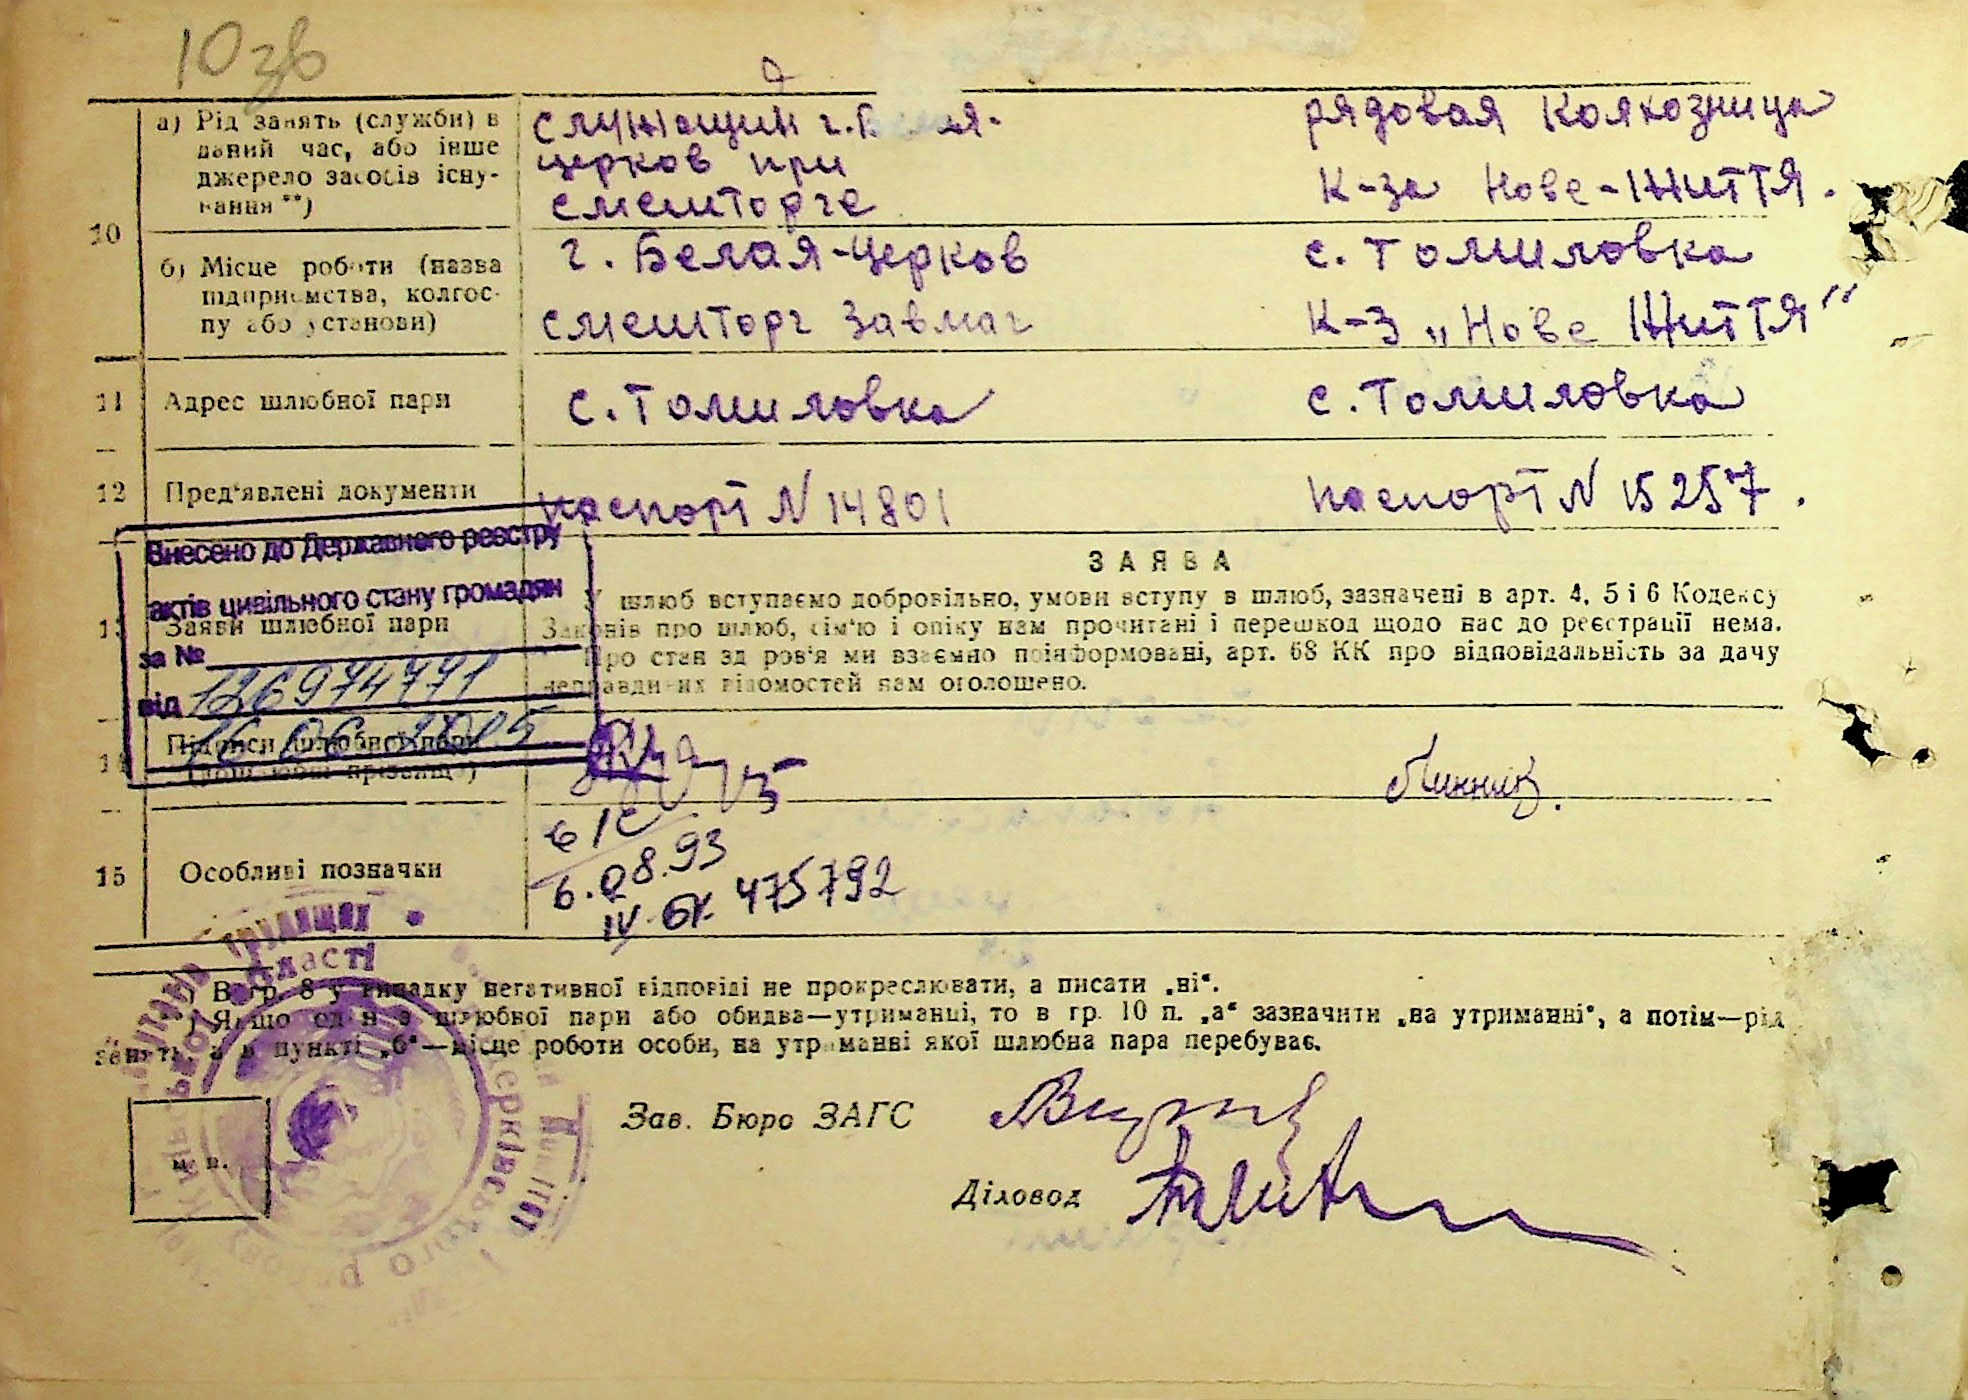 10 зв
а) Рід занять (служби) в даний час, або інше джерело засобів існування **)
служащий г. Белая-
церков при
смешторге
рядовая колхозница
к-за Нове-Життя.
10
б) Місце роботи (назва підприємства, колгоспу або установи)
г. Белая-Церков
смешторг завмаг
с. Томиловка
к-з „Нове Життя"
11 Адрес шлюбної пари
с. Томиловка
с. Томиловка
12 Пред'явлені документи
паспорт N 14801
паспорт N 15257.
Внесено до Державного реєстру
актів цивільного стану громадян
за № 126974771
від 16 06 2015
13 Заяви шлюбної пари
ЗАЯВА
У шлюб вступаємо добровільно, умови вступу в шлюб, зазначені в арт. 4, 5 і 6 Кодексу
Законів про шлюб, сім'ю і опіку нам прочитані і перешкод щодо нас до реєстрації нема.
Про стан здоров'я ми взаємно поінформовані, арт. 68 КК про відповідальність за дачу
неправдивих відомостей нам оголошено.
14 Підписи шлюбної пари
(дошлюбні прізвища)
15 Особливі позначки
6.08.93
IV-БК 475792
*) В гр. 8 у випадку негативної відповіді не прокреслювати, а писати „ні“.
**) Якщо один з шлюбної пари або обидва—утриманці, то в гр. 10 п. „а“ зазначити „на утриманні“, а потім—рід
занять, а в пункті „б“—місце роботи особи, на утриманні якої шлюбна пара перебуває.
Зав. Бюро ЗАГС
м. п.
Діловод